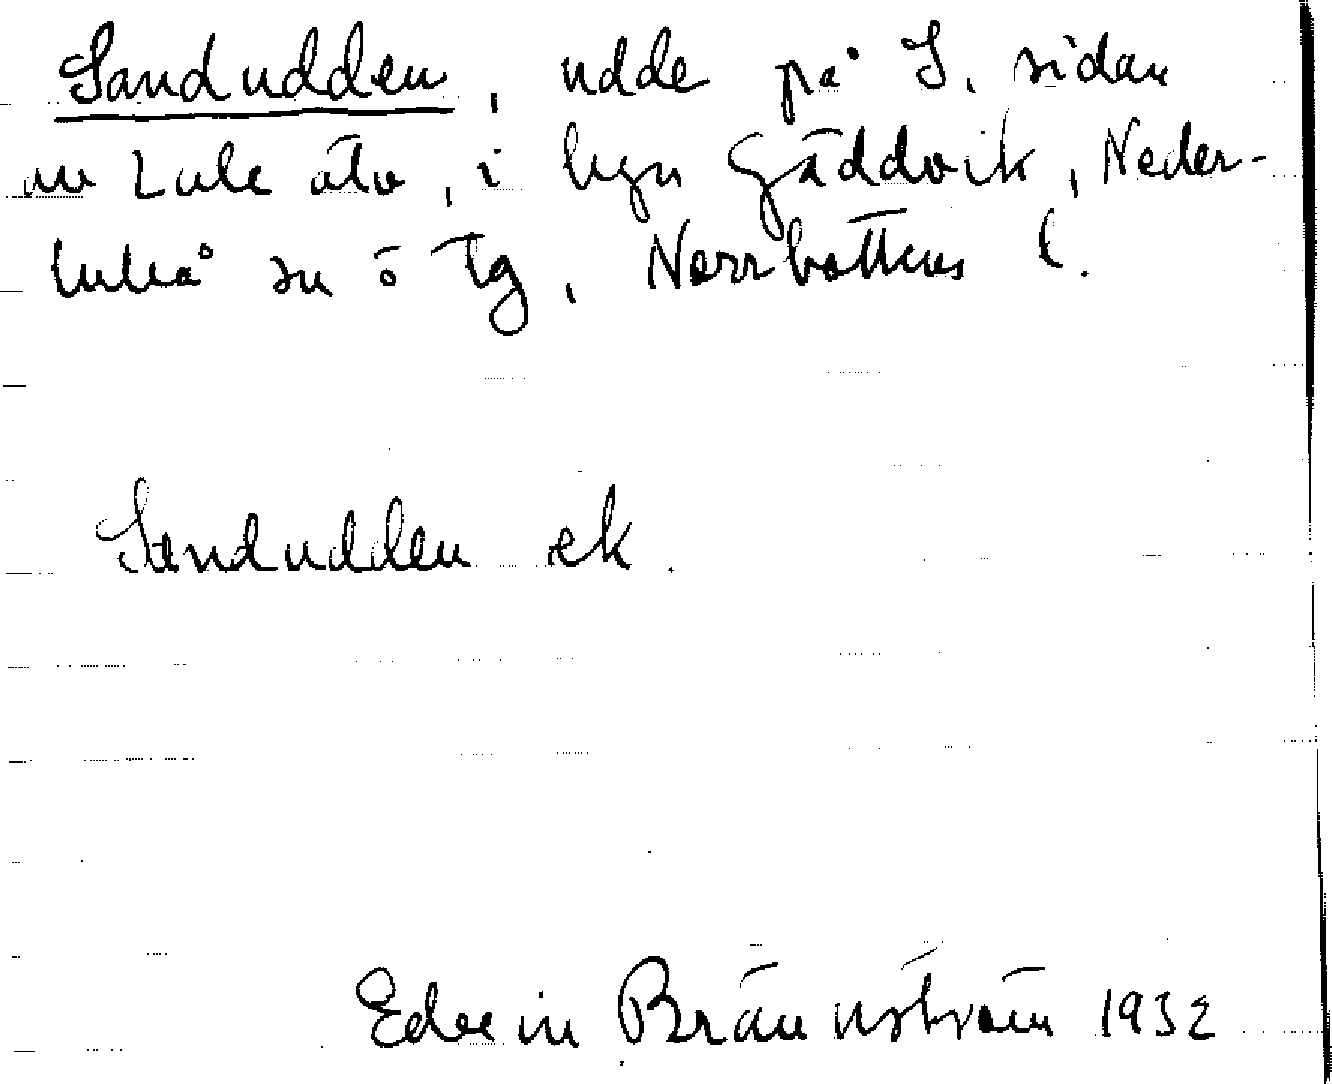 Sandudden, udde på S. sidan
av Lule älv, i byn Gäddvik, Neder-
luleå sn o tg, Norrbottens l.
Sandudden ek.
Edvin Brännström 1932